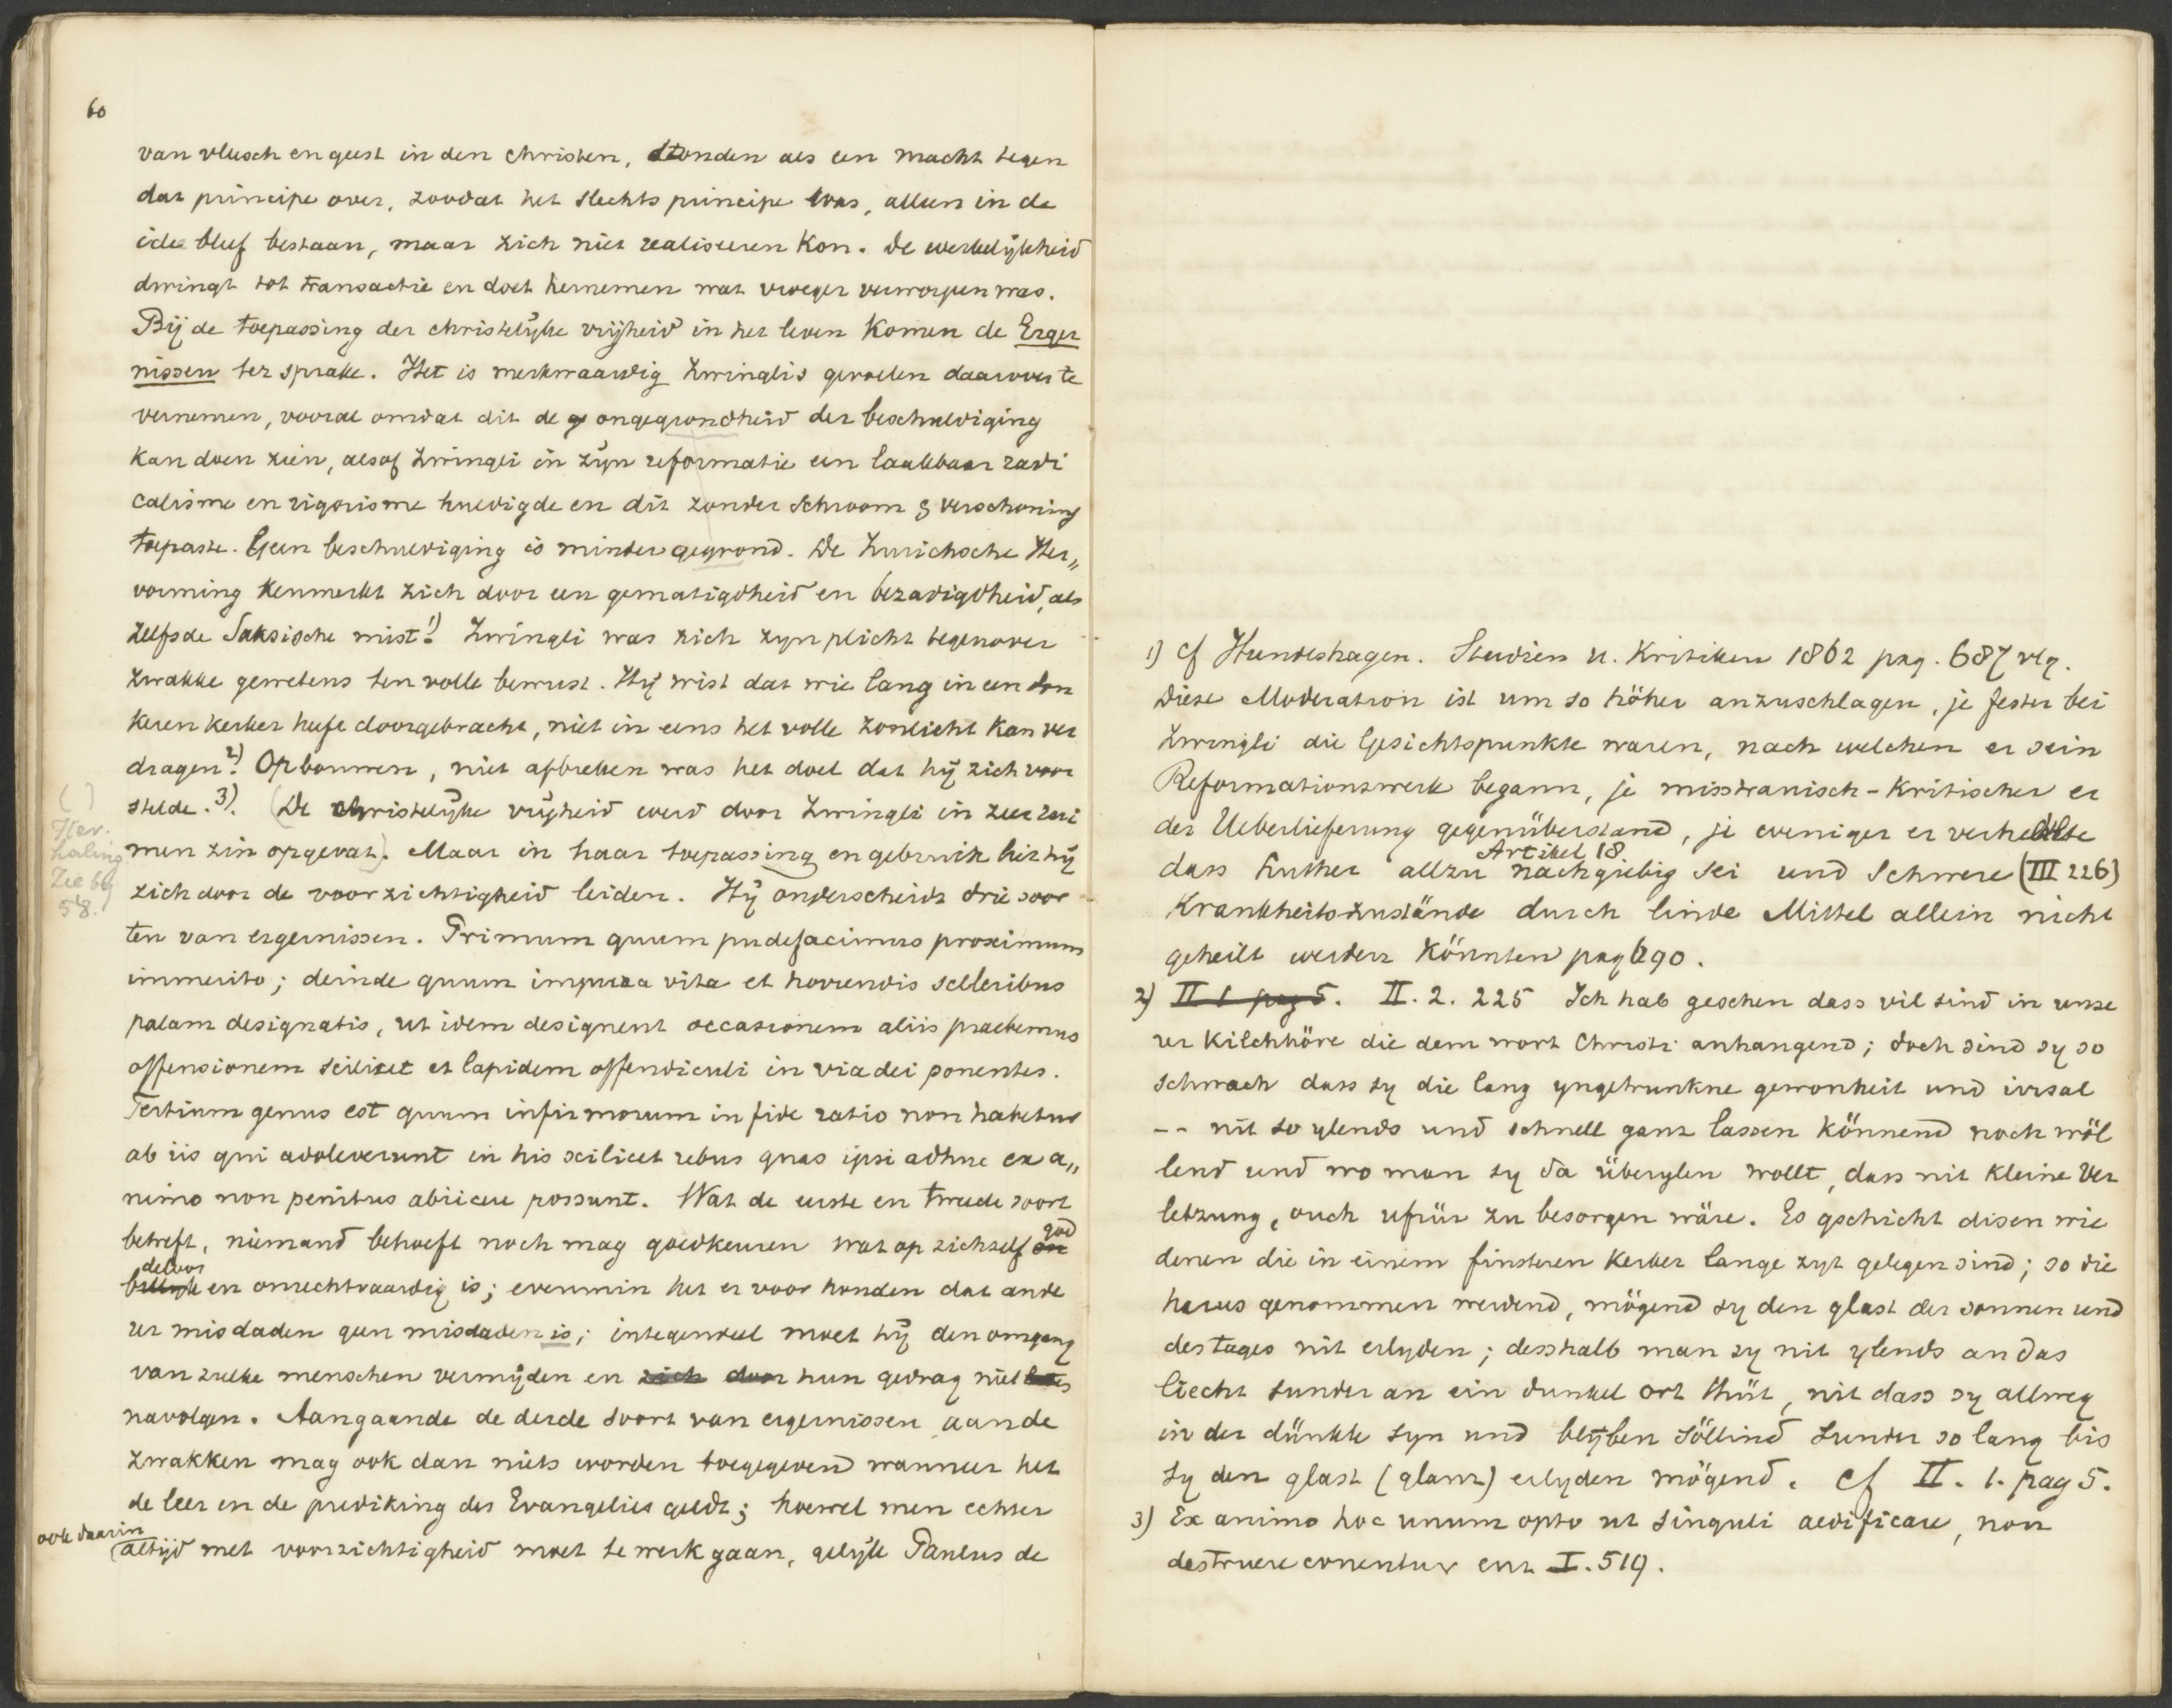 60
van vleesch en geest in den christen, stonden als een macht tegen
dat principe over, zoodat het slechts principe was, alleen in de
idee bleef bestaan, maar zich niet realiseeren kon. De werkelijkheid
dwingt tot transactie en doet hernemen wat vroeger verworpen was.
Bij de toepassing der christelijke vrijheid in het leven komen de Erger
nissen ter sprake. Het is merkwaardig Zwinglis gevoelen daarover te
vernemen, vooral omdat dit de ongegrondheid der beschuldiging
kan doen zien, alsof Zwingli in zijn reformatie een laakbaar radi
calisme en rigorisme huldigde en dit zonder schroom & verschoning
toepaste. Geen beschuldiging is minder gegrond. De Zurichsche Her„
vorming kenmerkt zich door een gematigdheid en bezadigdheid, als
zelfs de Saksische mist.1) Zwingli was zich zyn plicht tegenover
zwakke gewetens ten volle bewust. Hij wist dat wie lang in een don
keren kerker heeft doorgebracht, niet in eens het volle zonlicht kan ver
dragen.2) Opbouwen, niet afbreken was het doel dat hij zich voor
stelde.3). (De christelijke vrijheid werd door Zwingli in zeer rui
men zin opgevat). Maar in haar toepassing en gebruik liet hij
zich door de voorzichtigheid leiden. Hij onderscheidt drie soor
ten van ergernissen. Primum quum pudefacimus proximum
immerito; deinde quum impura vita et horrendis sceleribus
palam designatis, ut idem designent occasionem aliis praebemus
offensionem scilicet et lapidem offendiculi in via dei ponentes.
Tertium genus est quum infirmorum in fide ratio non habetur
ab iis qui adoleverunt in his scilicet rebus quas ipsi adhuc ex a„
nimo non penitus abiicere possunt. Wat de eerste en tweede soort
betreft, niemand behoeft noch mag goedkeuren wat op zichzelf god
deloos
billijk en onrechtvaardig is; evenmin het er voor houden dat ande
rer misdaden geen misdaden is; integendeel moet hij den omgang
van zulke menschen vermijden en zich door hun gedrag niet
navolgen. Aangaande de derde soort van ergernissen, aan de
zwakken mag ook dan niets worden toegegeven wanneer het
de leer en de prediking des Evangelies geldt; hoewel men echter
ook daarin
altijd met voorzichtigheid moet te werk gaan, gelijk Paulus de
( )
Her.
haling
Zie blz
58.
1) cf Hundeshagen. Studien u. Kritiken 1862 pag. 687 vlg.
Diese Moderation ist um so höher anzuschlagen, je fester bei
Zwingli die Gesichtspunkte waren, nach welchen er sein
Reformationswerk begann, je misstrauisch-kritischer er
der Ueberlieferung gegenüberstand, je weniger er verhehlte
Artikel 18
dass Luther allzu nachgiebig sei und schwere (III 226)
Krankheitszustände durch linde Mittel allein nicht
geheilt werden könnten pag 690.
2) II 1 pag 5. II. 2. 225 Ich hab gesehen dass vil sind in unse
rer Kilchhöre die dem wort Christi anhangend; doch sind sy so
schwach dass sy die lang yngetrunkne gewonheit und irrsal
-- nit so ylends und schnell ganz lassen könnend noch wöl
lend und wo man sy da überylen wollt, dass nit kleine Ver
letzung, ouch ufrür zu besorgen wäre. Es gschicht disen wie
denen die in einem finsteren kerker lange zyt gelegen sind; so die
harus genommen werdend, mögend sy den glast der sonnen und
des tages nit erlyden; desshalb man sy nit ylends an das
liecht sunder an ein dunkel ort thüt, nit dass sy allweg
in der dünkle syn und blyben söllind sunder so lang bis
sy den glast (glanz) erlyden mögend. cf II. 1. pag 5.
3) Ex animo hoc unum opto ut singuli aedificare, non
destruere conentur enz I. 519.